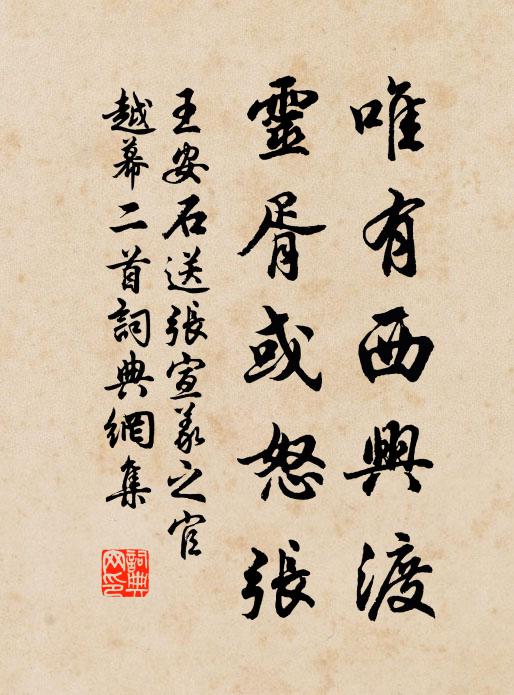 唯有西興渡
靈胥或怒張
王安石送張宣義之官
越幕二首詞典網集
詞典網印